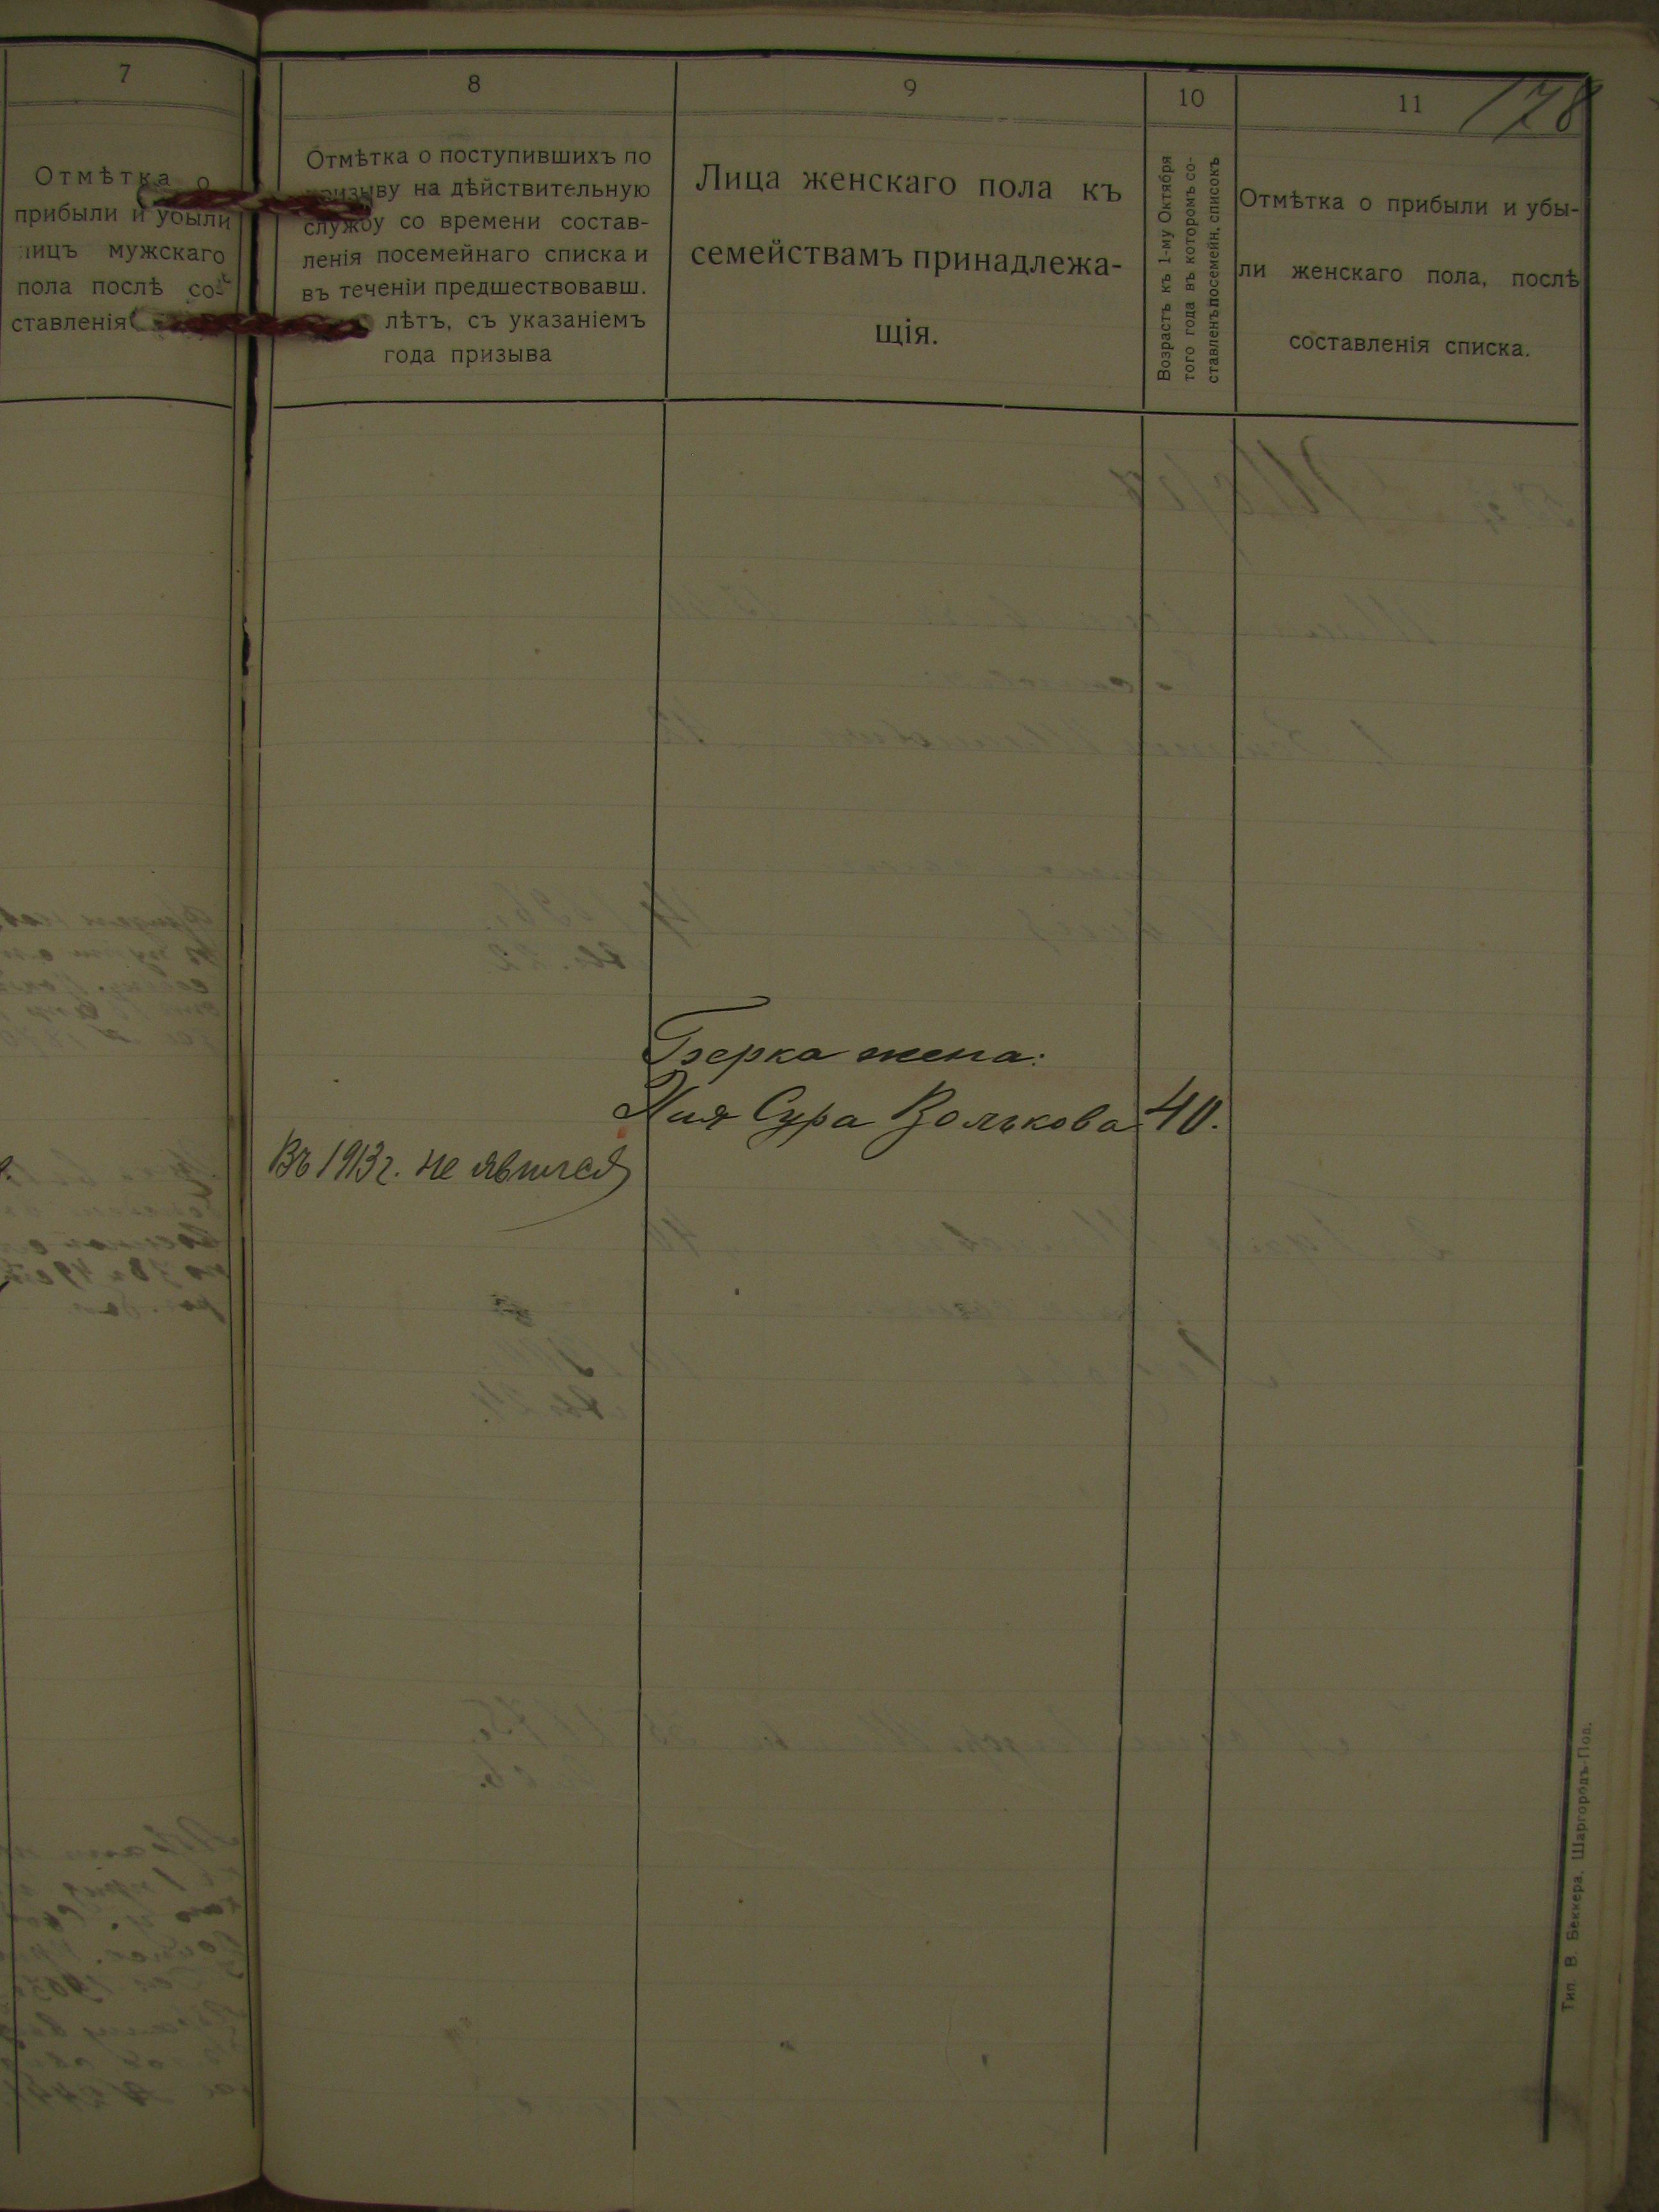 7
Отмѣтка о
прибыли и убыли
лицъ мужскаго
пола послѣ со-
ставленія
8
Отмѣтка о поступившихъ по
призыву на дѣйствительную
службу со времени состав-
ленія посемейнаго списка и
въ теченіи предшествовавш.
лѣтъ, съ указаніемъ
года призыва
9
Лица женскаго пола къ
семействамъ принадлежа-
щія.
10
Возрастъ къ 1-му Октября
того года въ которомъ со-
ставленъ посемейн. списокъ
11
178
Отмѣтка о прибыли и убы-
ли женскаго пола, послѣ
составленія списка.
Берка жена:
Хая Сура Волькова 40.
Въ 1913 г. не явился
Тип. В. Беккера. Шаргородъ-Под.